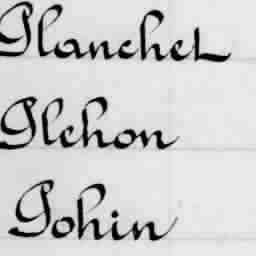 Planchet
Plehon
Pohin